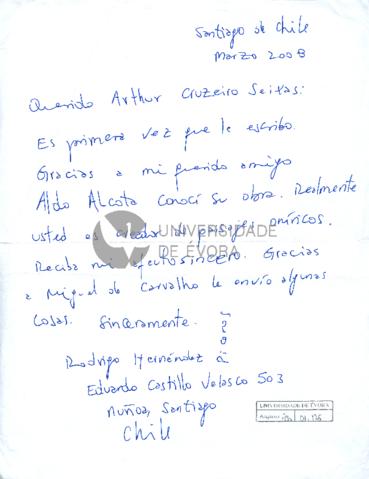 Santiago de Chile
Marzo 2008
Querido Arthur Cruzeiro Seixas:
Es primera vez que le escribo.
Gracias a mi querido amigo
Aldo Alcota conocí su obra. Realmente
usted es creador de paisajes oníricos.
UNIVERSIDADE
DE ÉVORA
Reciba mi afecto sincero. Gracias
a Miguel de Carvalho le envío algunas
cosas. Sinceramente.
Rodrigo Hernández
Eduardo Castillo Velasco 503
Ñuñoa, Santiago
Chile
UNIVERSIDADE DE ÉVORA